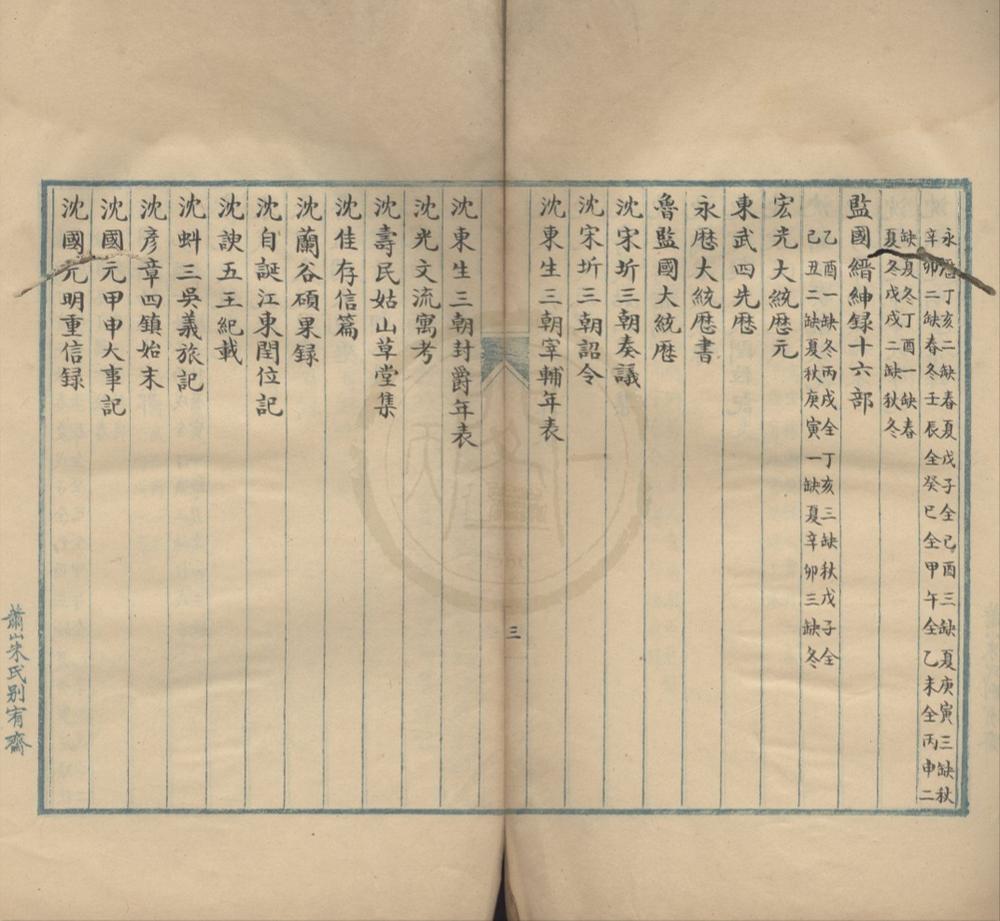 永曆丁亥二缺春夏戊子全己酉三缺夏庚寅三缺秋
辛卯二缺春冬壬辰全癸巳全甲午全乙未全丙申二
缺夏冬丁酉一缺春
夏冬戊戌二缺秋冬
監國縉紳録十六部
乙酉一缺冬丙戌全丁亥三缺秋戊子全
己丑二缺夏秋庚寅一缺夏辛卯三缺冬
宏光大統厯元
東武四先厯
永厯大統厯書
魯監國大統厯
沈宋圻三朝奏議
沈宋圻三朝詔令
沈東生三朝宰輔年表
三
沈東生三朝封爵年表
沈光文流寓考
沈壽民姑山草堂集
沈佳存信篇
沈蘭谷碩果録
沈自誕江東閏位記
沈諛五王紀載
沈蚪三吳義旅記
沈彥章四鎮始末
沈國元甲申大事記
沈國元明重信録
蕭山朱氏别宥齋